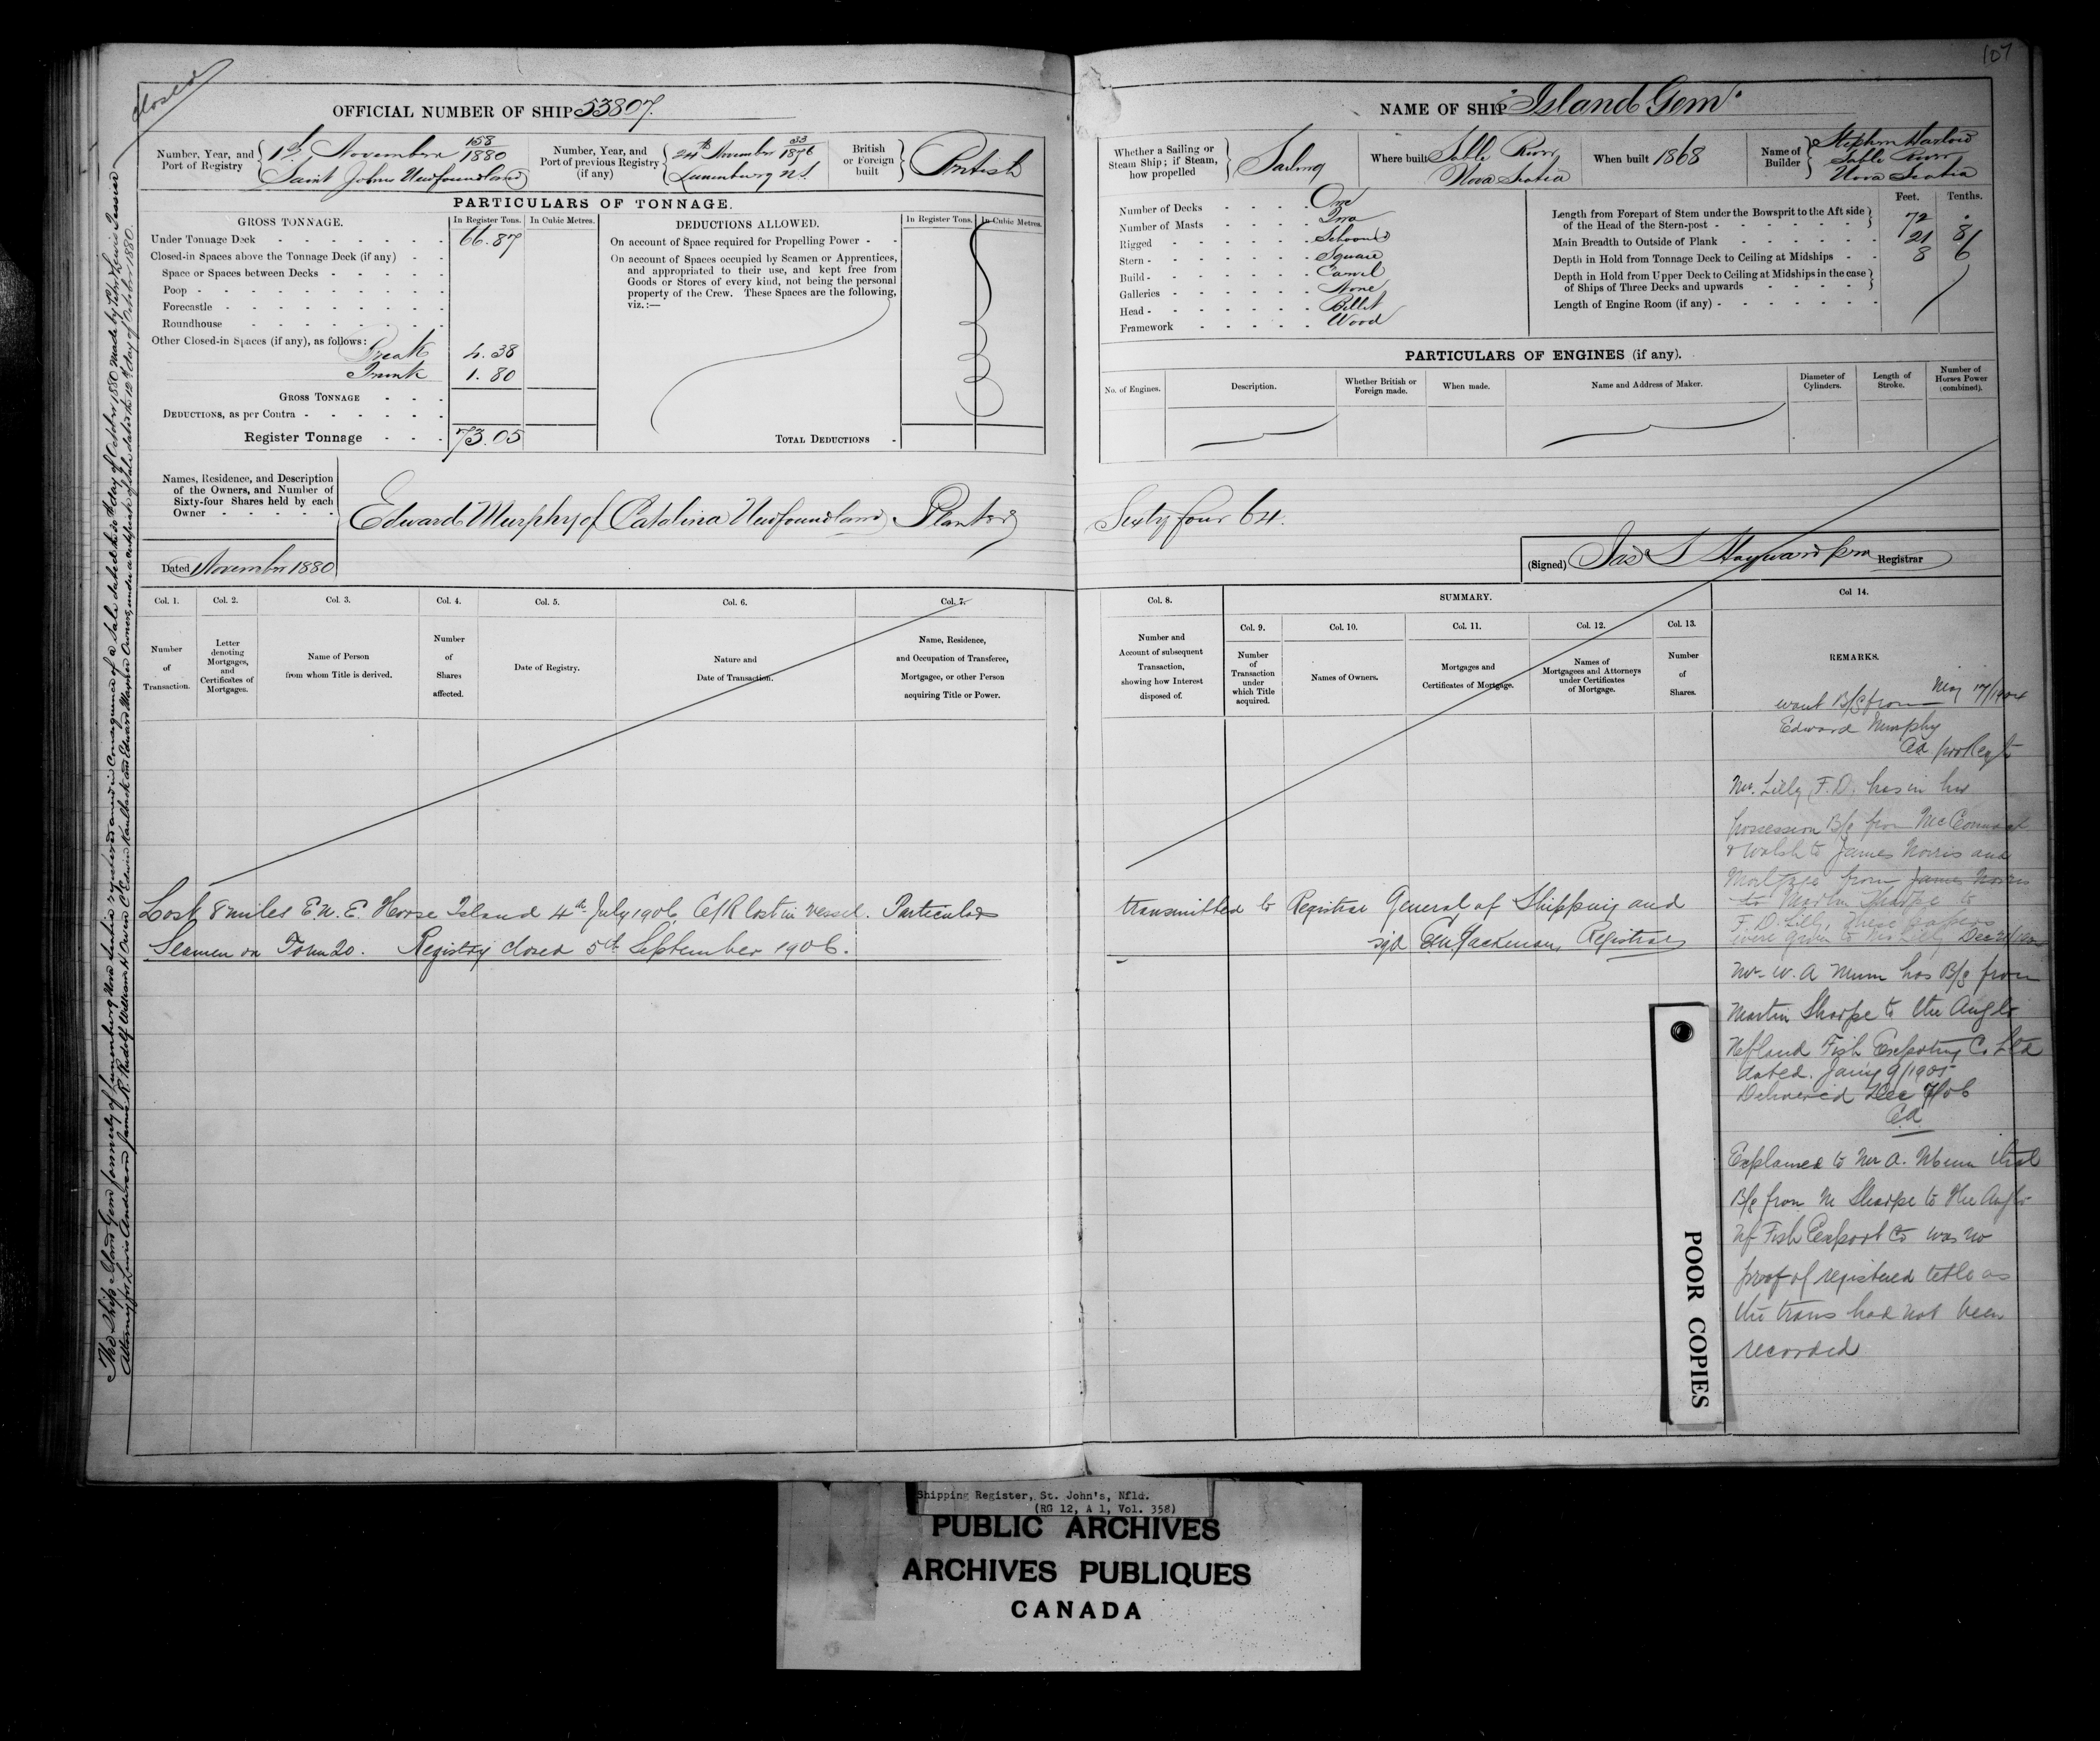 closed
107
OFFICIAL NUMBER OF SHIP 53807.
Number, Year, and Port of Registry
1st November 158/1880
Saint Johns Newfoundland
Number, Year, and Port of previous Registry (if any)
24th November 33/1876
Lunenburg N.S.
British or Foreign built
British
PARTICULARS OF TONNAGE.
GROSS TONNAGE.
In Register Tons.
In Cubic Metres.
Under Tonnage Deck 66.87
Closed-in Spaces above the Tonnage Deck (if any)
Space or Spaces between Decks
Poop
Forecastle
Roundhouse
Other Closed-in Spaces (if any), as follows:
Break 4.38
Trunk 1.80
GROSS TONNAGE
DEDUCTIONS, as per Contra
Register Tonnage 73.05
DEDUCTIONS ALLOWED.
In Register Tons.
In Cubic Metres.
On account of Space required for Propelling Power
On account of Spaces occupied by Seamen or Apprentices,
and appropriated to their use, and kept free from
Goods or Stores of every kind, not being the personal
property of the Crew. These Spaces are the following,
viz.:—
TOTAL DEDUCTIONS
Names, Residence, and Description
of the Owners, and Number of
Sixty-four Shares held by each
Owner
Edward Murphy of Catalina Newfoundland Planter
Dated November 1880
NAME OF SHIP "Island Gem"
Whether a Sailing or Steam Ship; if Steam, how propelled
Sailing
Where built
Sable River
Nova Scotia
When built 1868
Name of Builder
Stephen Harlow
Sable River
Nova Scotia
Number of Decks One
Number of Masts Two
Rigged Schooner
Stern Square
Build Carvel
Galleries None
Head Billet
Framework Wood
Feet. Tenths.
Length from Forepart of Stem under the Bowsprit to the Aft side
of the Head of the Stern-post 72 .
Main Breadth to Outside of Plank 21 8
Depth in Hold from Tonnage Deck to Ceiling at Midships 8 6
Depth in Hold from Upper Deck to Ceiling at Midships in the case
of Ships of Three Decks and upwards
Length of Engine Room (if any)
PARTICULARS OF ENGINES (if any).
No. of Engines.
Description.
Whether British or Foreign made.
When made.
Name and Address of Maker.
Diameter of Cylinders.
Length of Stroke.
Number of Horses Power (combined).
Sixty four 64.
(Signed) Jas S Hayward pro Registrar
Col. 1. Number of Transaction.
Col. 2. Letter denoting Mortgages, and Certificates of Mortgages.
Col. 3. Name of Person from whom Title is derived.
Col. 4. Number of Shares affected.
Col. 5. Date of Registry.
Col. 6. Nature and Date of Transaction.
Col. 7. Name, Residence, and Occupation of Transferee, Mortgagee, or other Person acquiring Title or Power.
Col. 8. Number and Account of subsequent Transaction, showing how Interest disposed of.
SUMMARY.
Col. 9. Number of Transaction under which Title acquired.
Col. 10. Names of Owners.
Col. 11. Mortgages and Certificates of Mortgage.
Col. 12. Names of Mortgagees and Attorneys under Certificates of Mortgage.
Col. 13. Number of Shares.
Col 14. REMARKS.
Lost 8 miles E.N.E. Horse Island 4th July 1906, C/R lost in vessel. Particulars transmitted to Registrar General of Shipping and
Seamen on Form 20. Registry closed 5th September 1906. sgd Jackman, Registrar
May 17/1904
want B/S from
Edward Murphy
Mr. Lilly F.D. has in his
possession B/S from McConnast
& Walsh to James Norris and
Mortgage from James Norris
to Martin Sharpe to
F.D. Lilly, these papers
were given to Mr Lilly Dec
Mr W. A Munn has B/S from
Martin Sharpe to the Anglo
Nfland Fish Exporting Co Ltd
dated. Jany 9/1905
Delivered Dec 7/06
Explained to Mr A. Munn that
B/S from M Sharpe to the Anglo
Nf Fish Export Co was no
proof of registered title as
the trans had not been
recorded
The Ship Island Gem formerly of Lunenburg Nova Scotia registered anew in Consequence of a Sale dated his day of October 1880 made by Peter Lewis Tessier
Attorney for Lewis Anderson James R. Rudolf William N Owen C. Edwin Kaulback and Edward Owners, under a certificate of Sale dated the 12th day of October 1880.
POOR COPIES
Shipping Register, St. John's, Nfld.
(RG 12, A 1, Vol. 358)
PUBLIC ARCHIVES
ARCHIVES PUBLIQUES
CANADA